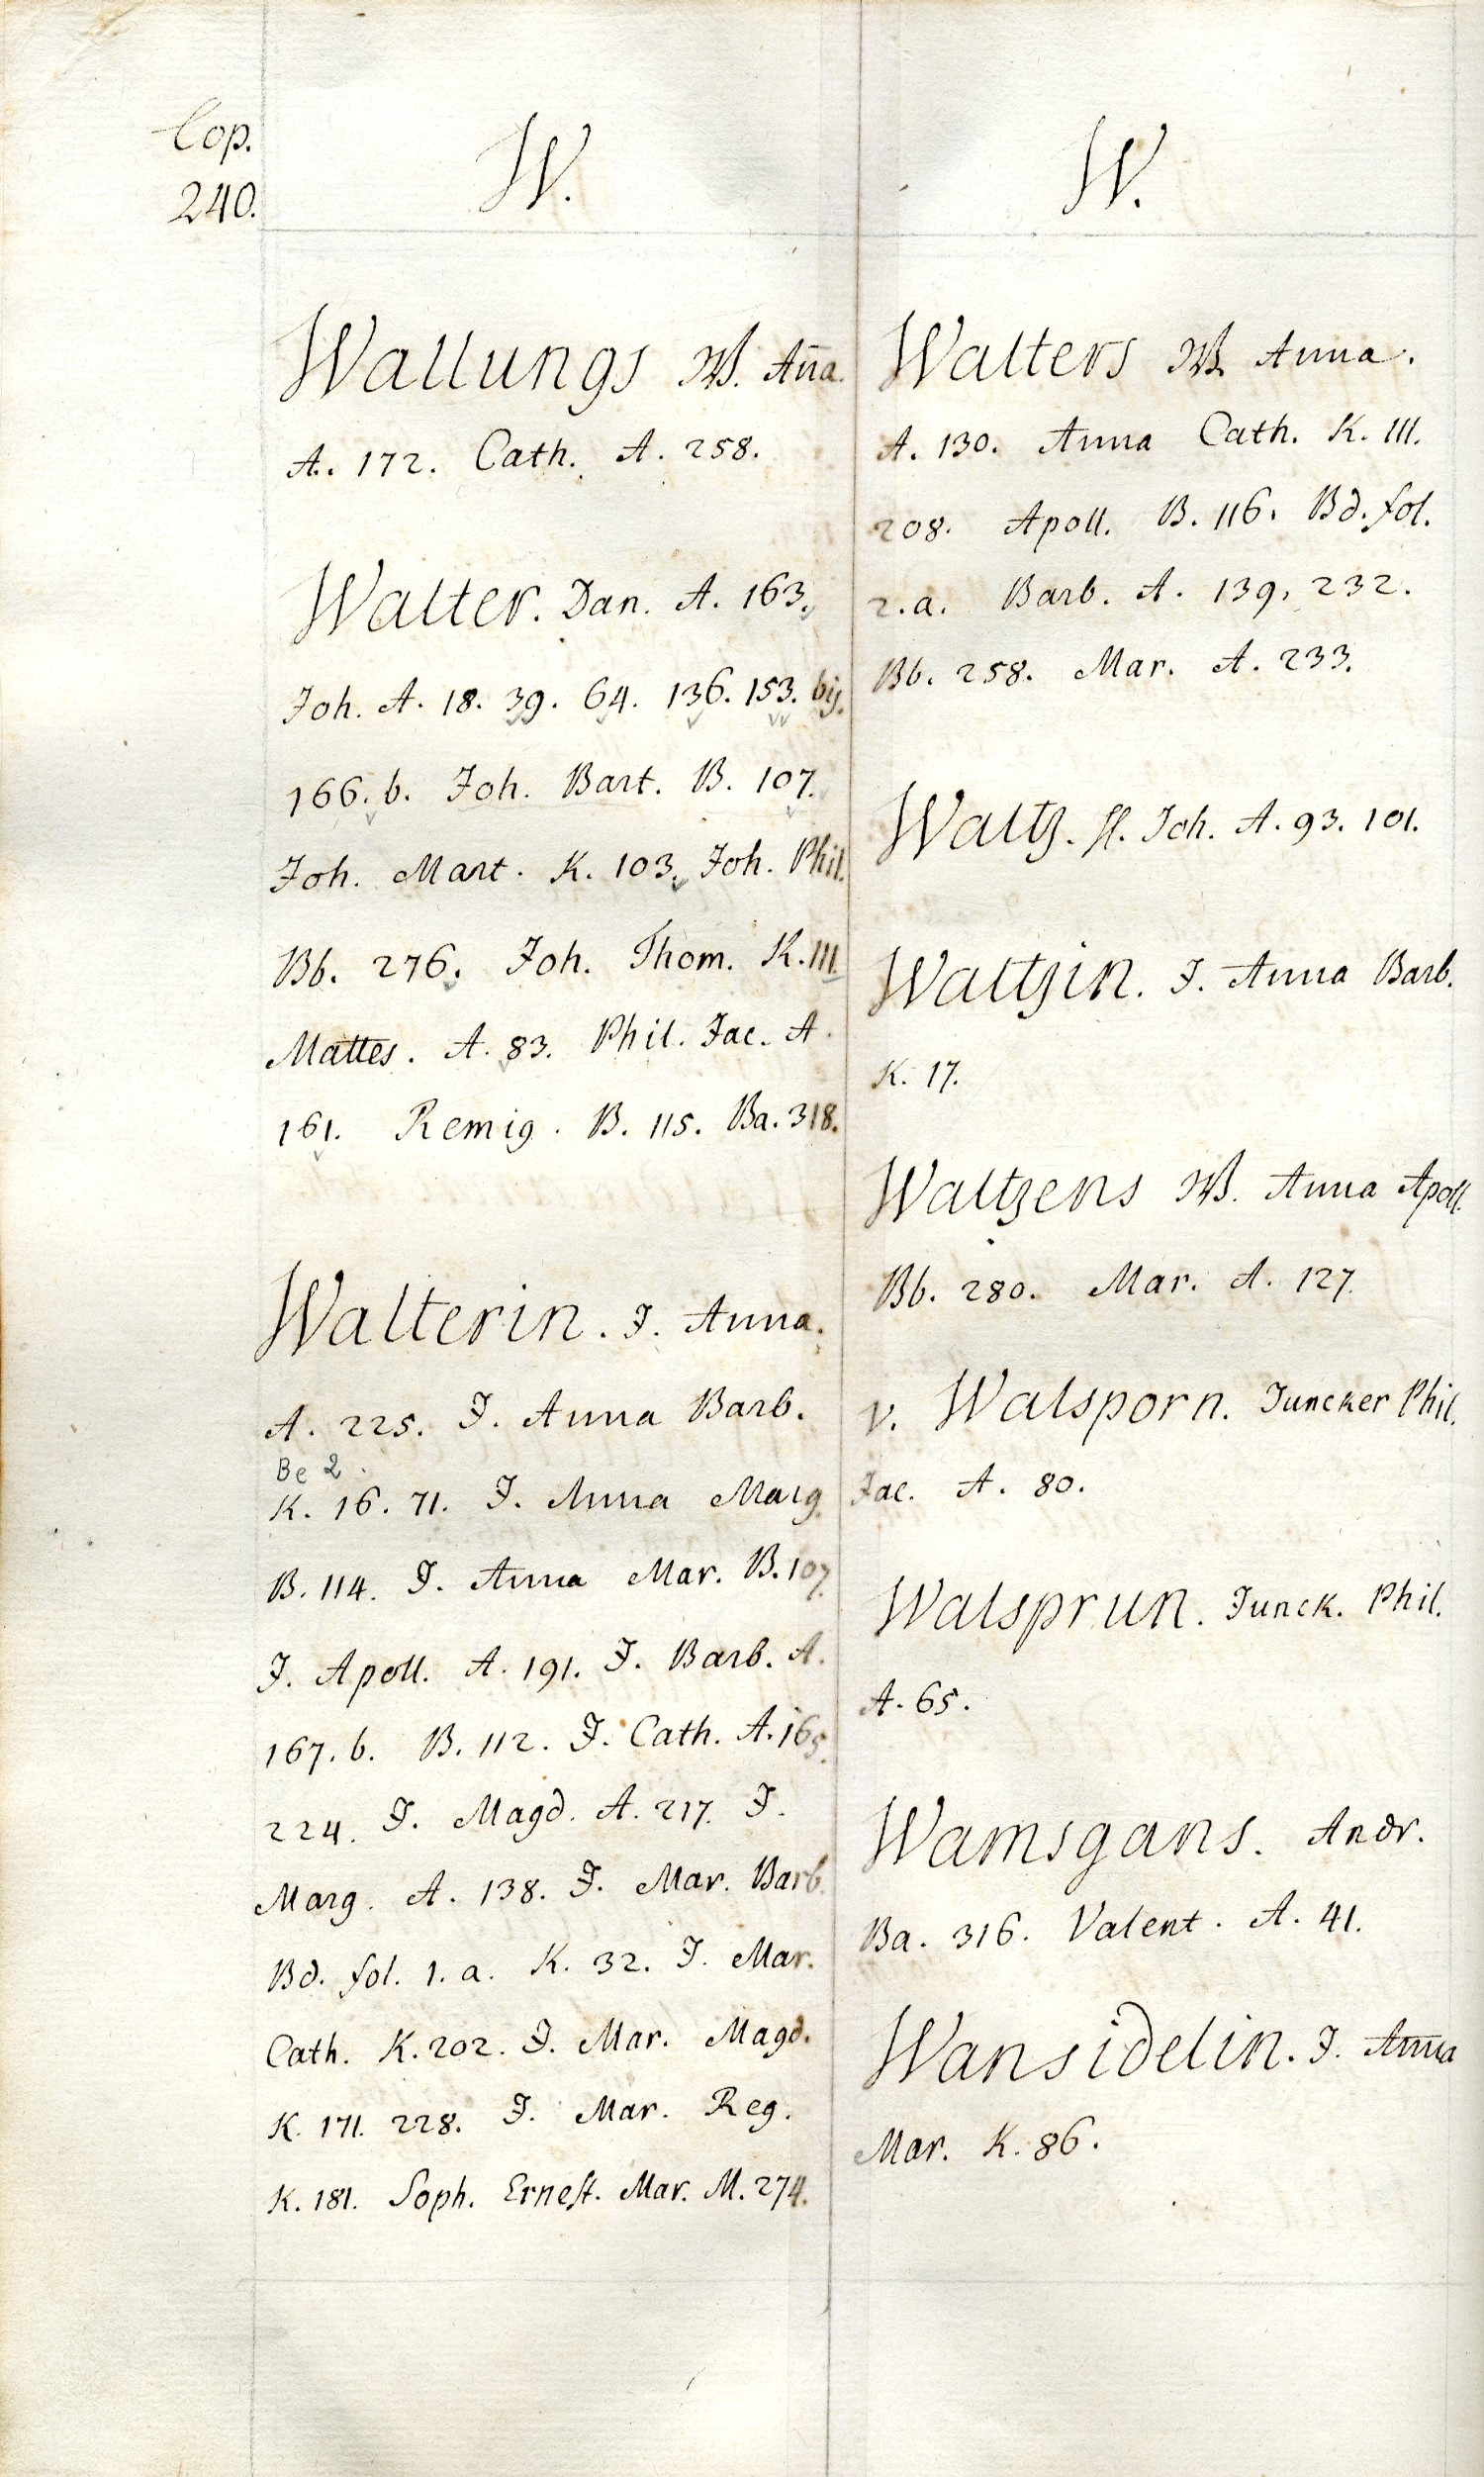 Cop.
240.
W.
Wallungs W. Aña.
A. 172. Cath. A. 258.
Walter. Dan. A. 163.
Joh. A. 18. 39. 64. 136. 153. bis.
166. b. Joh. Bart. B. 107.
Joh. Mart. K. 103. Joh. Phil.
Bb. 276. Joh. Thom. K. 111.
Mattes. A. 83. Phil. Jac. A.
161. Remig. B. 115. Ba. 318.
Walterin. J. Anna.
A. 225. J. Anna Barb.
Be 2.
K. 16. 71. J. Anna Marg.
B. 114. J. Anna Mar. B. 107.
J. Apoll. A. 191. J. Barb. A.
167. b. B. 112. J. Cath. A. 165.
224. J. Magd. A. 217. J.
Marg. A. 138. J. Mar. Barb.
Bd. fol. 1. a. K. 32. J. Mar.
Cath. K. 202. J. Mar. Magd.
K. 171. 228. J. Mar. Reg.
K. 181. Soph. Ernest. Mar. M. 274.
W.
Walters W. Anna.
A. 130. Anna Cath. K. 111.
208. Apoll. B. 116. Bd. fol.
2. a. Barb. A. 139. 232.
Bb. 258. Mar. A. 233.
Waltz. H. Joh. A. 93. 101.
Waltzin. J. Anna Barb.
K. 17.
Waltzens W. Anna Apoll.
Bb. 280. Mar. A. 127.
v. Walsporn. Juncker Phil.
Jac. A. 80.
Walsprun. Junck. Phil.
A. 65.
Wamsgans. Andr.
Ba. 316. Valent. A. 41.
Wansidelin. J. Anna
Mar. K. 86.